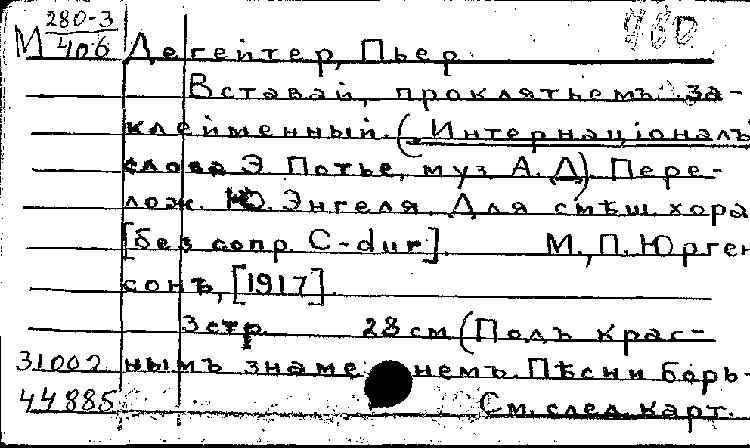 М 280-3
406
Дегейтер, Пьер
Вставай, проклятьемъ за-
клейменный. („Интернаціоналъ"
слова Э Потье, муз. А. Д.) Пере-
лож. Ю. Энгеля. Для смѣш. хора
[без сопр. C-dur]. М., П. Юрген
сонъ, [1917].
3 стр. 28 см. (Подъ крас-
31002 нымъ знаменемъ. Пѣсни борь-
44885 См. след. карт.